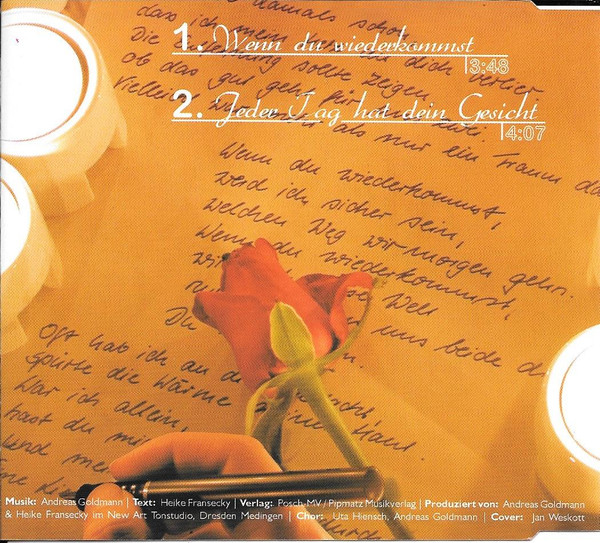 damals schon
dass ich mein Herz an dich verlier
Die Entfernung sollte zeigen
ob das gut geht für
Vielleicht war mehr als nur ein Traum da
1. Wenn du wiederkommst
3:48
2. Jeder Tag hat dein Gesicht
4:07
Wenn du wiederkommst,
werd ich sicher sein,
welchen Weg wir morgen gehn.
Wenn du wiederkommst,
Welt
Du uns beide
Oft hab ich an
Spürte die Wärme Haut
War ich allein,
hast du
Musik: Andreas Goldmann | Text: Heike Fransecky | Verlag: Posch-MV / Pipmatz Musikverlag | Produziert von: Andreas Goldmann
& Heike Fransecky im New Art Tonstudio, Dresden Medingen | Chor: Uta Hiensch, Andreas Goldmann | Cover: Jan Weskott